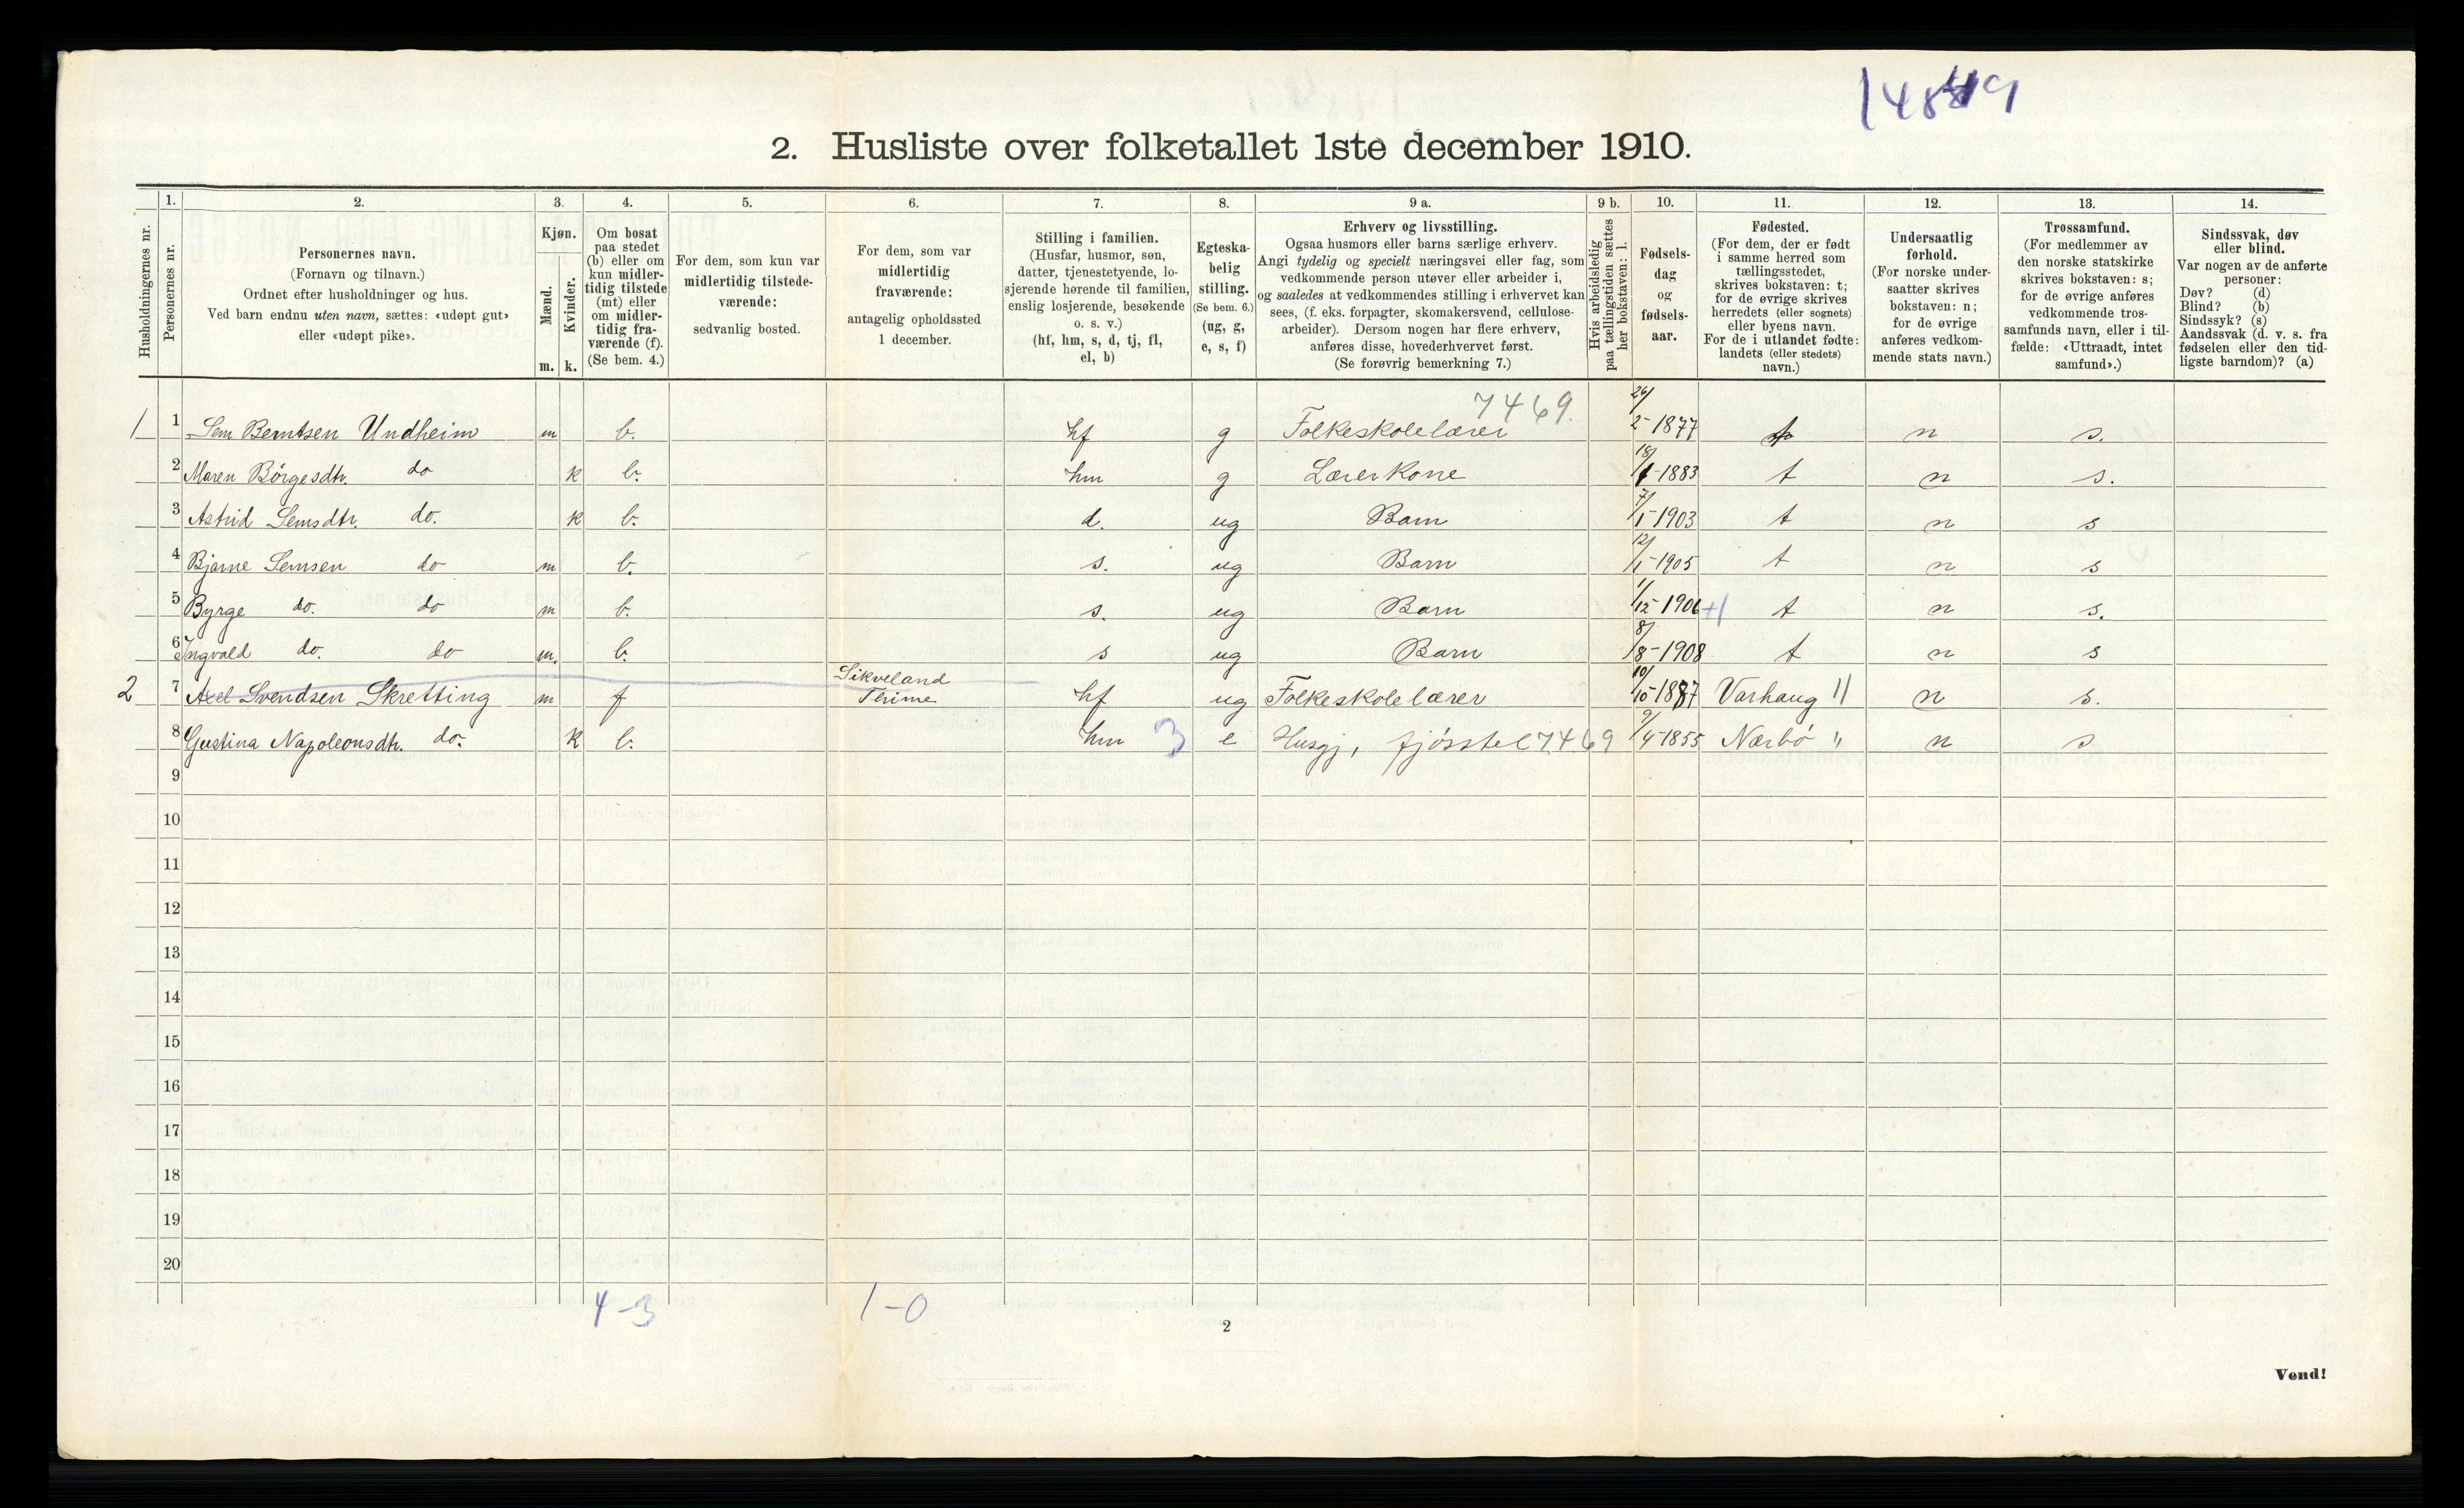 14849
2. Husliste over folketallet 1ste december 1910.
Husholdningernes nr.
1. Personernes nr.
2. Personernes navn. (Fornavn og tilnavn.) Ordnet efter husholdninger og hus. Ved barn endnu uten navn, sættes: «udøpt gut» eller «udøpt pike».
3. Kjøn. Mænd. m. Kvinder. k.
4. Om bosat paa stedet (b) eller om kun midlertidig tilstede (mt) eller om midlertidig fraværende (f). (Se bem. 4.)
5. For dem, som kun var midlertidig tilstedeværende: sedvanlig bosted.
6. For dem, som var midlertidig fraværende: antagelig opholdssted 1 december.
7. Stilling i familien. (Husfar, husmor, søn, datter, tjenestetyende, losjerende hørende til familien, enslig losjerende, besøkende o. s. v.) (hf, hm, s, d, tj, fl, el, b)
8. Egteskabelig stilling. (Se bem. 6.) (ug, g, e, s, f)
9 a. Erhverv og livsstilling. Ogsaa husmors eller barns særlige erhverv. Angi tydelig og specielt næringsvei eller fag, som vedkommende person utøver eller arbeider i, og saaledes at vedkommendes stilling i erhvervet kan sees, (f. eks. forpagter, skomakersvend, cellulosearbeider). Dersom nogen har flere erhverv, anføres disse, hovederhvervet først. (Se forøvrig bemerkning 7.)
9 b. Hvis arbeidsledig paa tællingstiden sættes her bokstaven: l.
10. Fødselsdag og fødselsaar.
11. Fødested. (For dem, der er født i samme herred som tællingsstedet, skrives bokstaven: t; for de øvrige skrives herredets (eller sognets) eller byens navn. For de i utlandet fødte: landets (eller stedets) navn.)
12. Undersaatlig forhold. (For norske undersaatter skrives bokstaven: n; for de øvrige anføres vedkommende stats navn.)
13. Trossamfund. (For medlemmer av den norske statskirke skrives bokstaven: s; for de øvrige anføres vedkommende trossamfunds navn, eller i tilfælde: «Uttraadt, intet samfund».)
14. Sindssvak, døv eller blind. Var nogen av de anførte personer: Døv? (d) Blind? (b) Sindssyk? (s) Aandssvak (d. v. s. fra fødselen eller den tidligste barndom)? (a)
7469.
1 1 Sem Berntsen Undheim m b. hf g Folkeskolelærer 26/2-1877 t n s.
2 Maren Børgesdtr. do k b. hm g Lærerkone 18/1-1883 t n s.
3 Astrid Semsdtr. do. k b. d. ug Barn 7/1-1903 t n s
4 Bjarne Semsen do m b. s. ug Barn 12/1-1905 t n s
5 Byrge do. do m b. s. ug Barn 1/12-1906 +1 t n s.
6 Ingvald do. do m. b. s ug Barn 8/8-1908 t n s
2 7 Axel Svendsen Skretting m f Sikveland Thime hf ug Folkeskolelærer 10/10-1887 Varhaug 11 n s.
8 Gustina Napoleonsdtr. do. k b. hm 3 e Husgj, fjøsstel 7469 9/4-1855 Nærbø " n s
9
10
11
12
13
14
15
16
17
18
19
20
4-3 1-0
2
Vend!